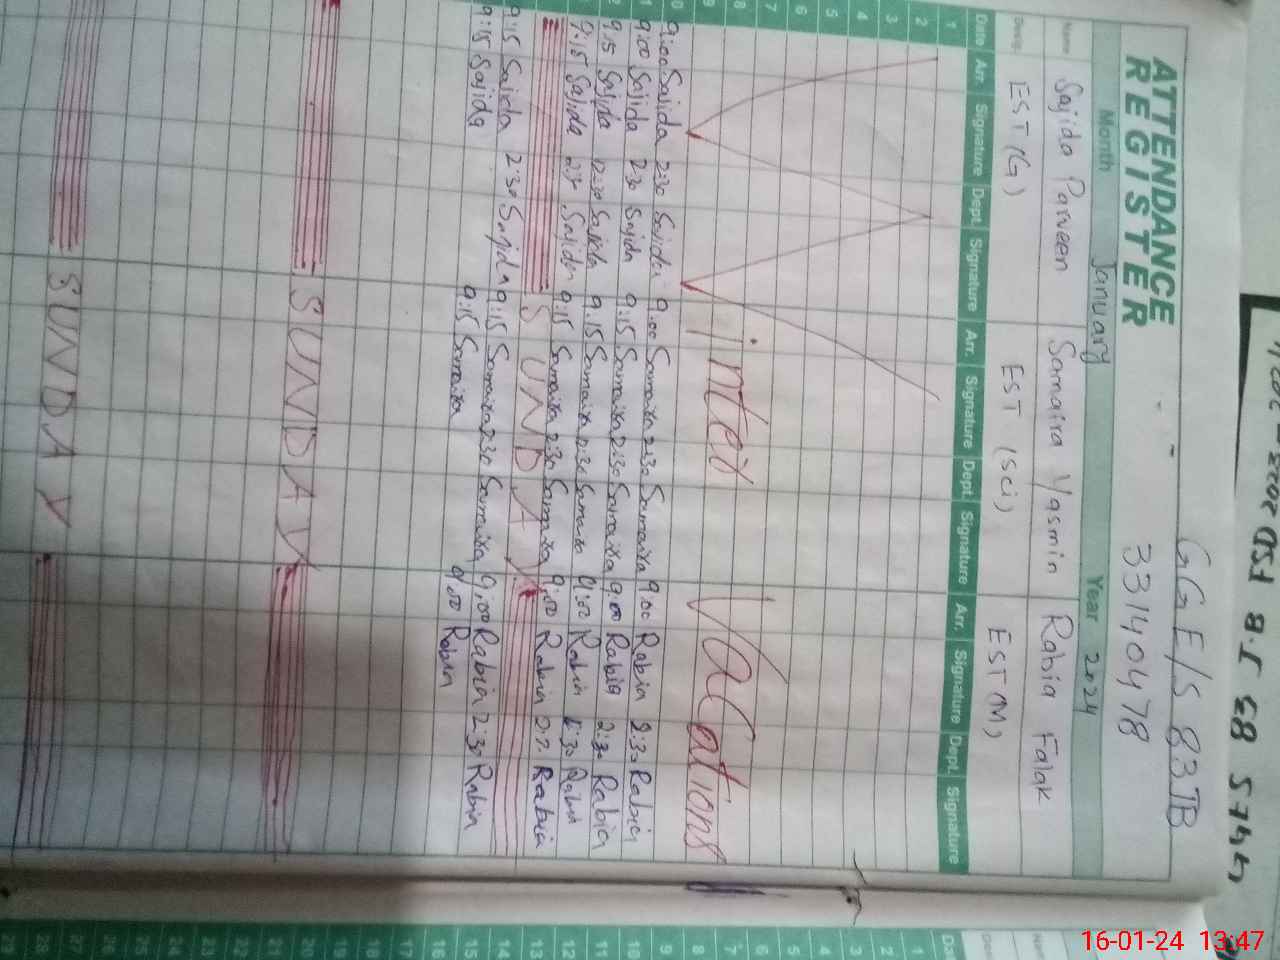 GGE/S 83JB
33140478
ATTENDANCE
REGISTER
Month January Year 2024
Name Sajida Parveen Samaira Yasmin Rabia Falak
Desig. EST (G) EST (Sci) EST (M)
Date Arr. Signature Dept. Signature Arr. Signature Dept. Signature Arr. Signature Dept. Signature
1
2
3
4
5
6
7
8
9
Winter Vacations
9:00 Sajida 2:30 Sajida 9:00 Samaira 2:30 Samaira 9:00 Rabia 2:30 Rabia
9:00 Sajida 2:30 Sajida 9:15 Samaira 2:30 Samaira 9:00 Rabia 2:30 Rabia
9:15 Sajida 12:30 Sajida 9:15 Samaira 12:30 Samaira 9:00 Rabia 12:30 Rabia
9:15 Sajida 2:30 Sajida 9:15 Samaira 2:30 Samaira 9:00 Rabia Rabia
SUNDAY
9:15 Sajida 2:30 Sajida 9:15 Samaira 2:30 Samaira 9:00 Rabia 2:30 Rabia
9:15 Sajida 9:15 Samaira 9:00 Rabia
SUNDAY
SUNDAY
1
2
3
4
5
6
7
8
9
10
11
12
13
14
15
16
17
18
19
20
21
22
23
24
25
26
27
28
29
16-01-24 13:47